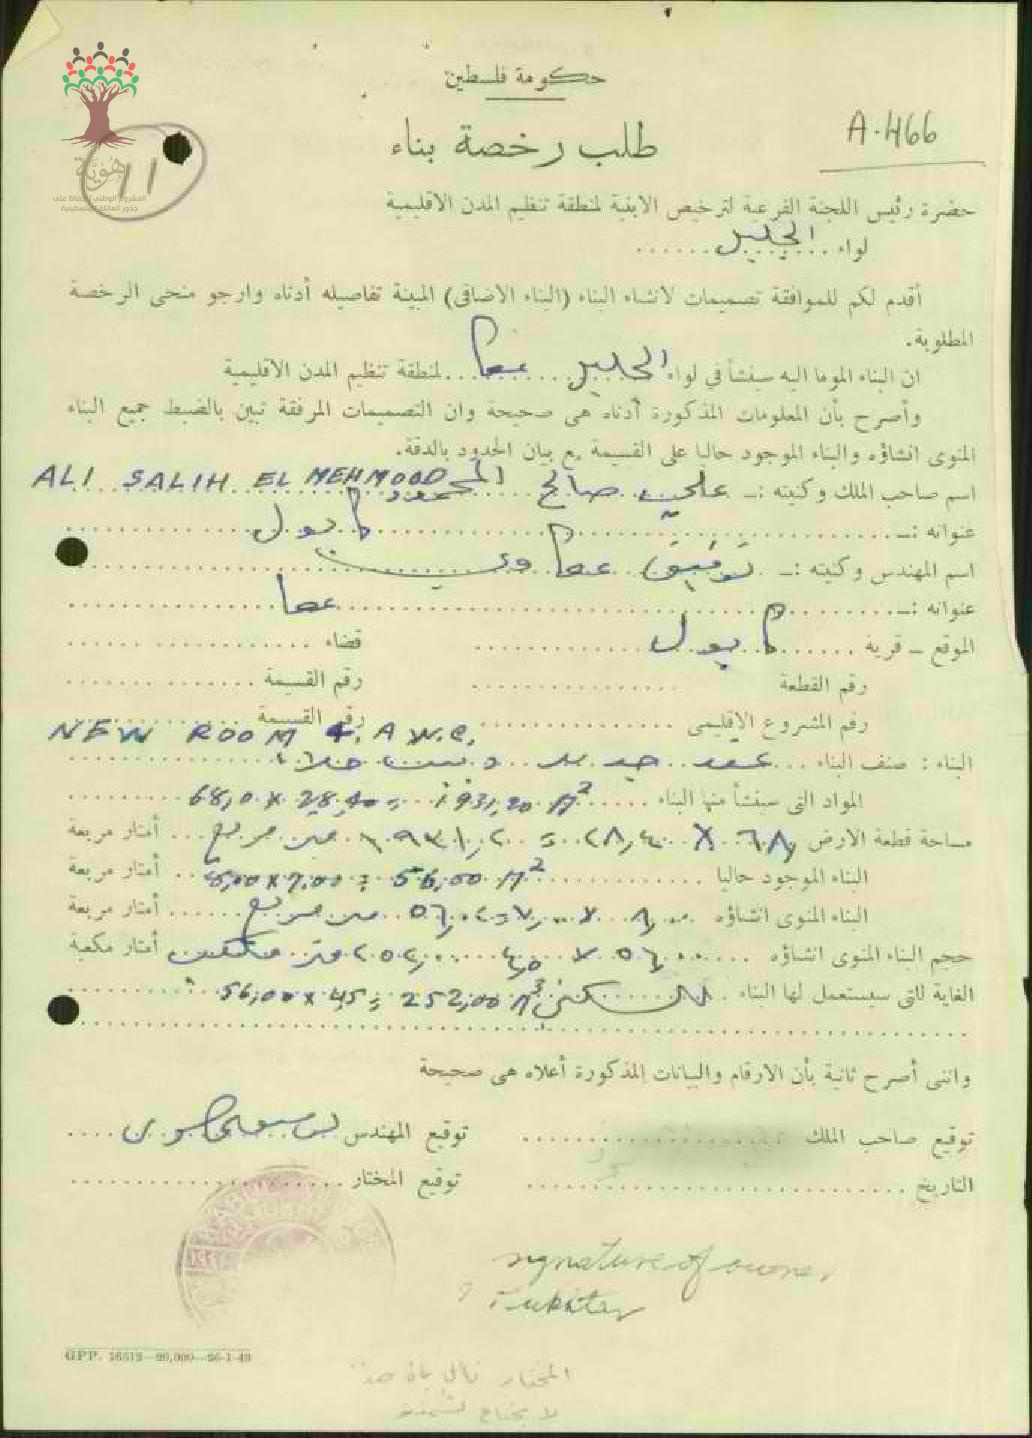 حكومة فلسطين
طلب رخصة بناء
A.466
هوية
11
حضرة رئيس اللجنة الفرعية لترخيص الابنية لمنطقة تنظيم المدن الاقليمية
لواء الجليل
أقدم لكم للموافقة تصميمات لانشاء البناء (البناء الاضافى) المبينة تفاصيله أدناه وارجو منحى الرخصة
المطلوبة.
ان البناء الموما اليه سينشأ في لواء الجليل عكا لمنطقة تنظيم المدن الاقليمية
وأصرح بأن المعلومات المذكورة أدناه هى صحيحة وان التصميمات المرفقة تبين بالضبط جميع البناء
المنوى انشاؤه والبناء الموجود حاليا على القسيمة مع بيان الحدود بالدقة.
اسم صاحب الملك وكنيته :ــ علي صالح المحمود ALI SALIH EL MEHMOOD
عنوانه :ــ كابول
اسم المهندس وكنيته :ــ توفيق عكاوي
عنوانه :ــ عكا
الموقع ــ قرية كابول قضاء
رقم القطعة رقم القسيمة
رقم المشروع الاقليمى رقم القسيمة
NEW ROOM & A W.C.
البناء : صنف البناء عقد جديد وبيت خلاء
المواد التى سينشأ منها البناء 68,0 x 28,40 = 1931,20 M²
مساحة قطعة الارض ٦٨,٠ X ٢٨,٤٠ = ١٩٣١,٢٠ متر مربع أمتار مربعة
البناء الموجود حاليا 8,00 x 7,00 = 56,00 M² أمتار مربعة
البناء المنوى انشاؤه ٨,٠٠ x ٧,٠٠ = ٥٦,٠٠ متر مربع أمتار مربعة
حجم البناء المنوى انشاؤه ٥٦,٠٠ x ٤,٥ ٢٥٢,٠٠ متر مكعب أمتار مكعبة
الغاية للتى سيستعمل لها البناء للسكن 56,00 x 4,5 = 252,00 M³
وانى أصرح ثانية بأن الارقام والبيانات المذكورة أعلاه هى صحيحة
توقيع صاحب الملك توقيع المهندس
التاريخ توقيع المختار
signature of owner
? Mukhtar
GPP. 16512—20,000—26-1-43